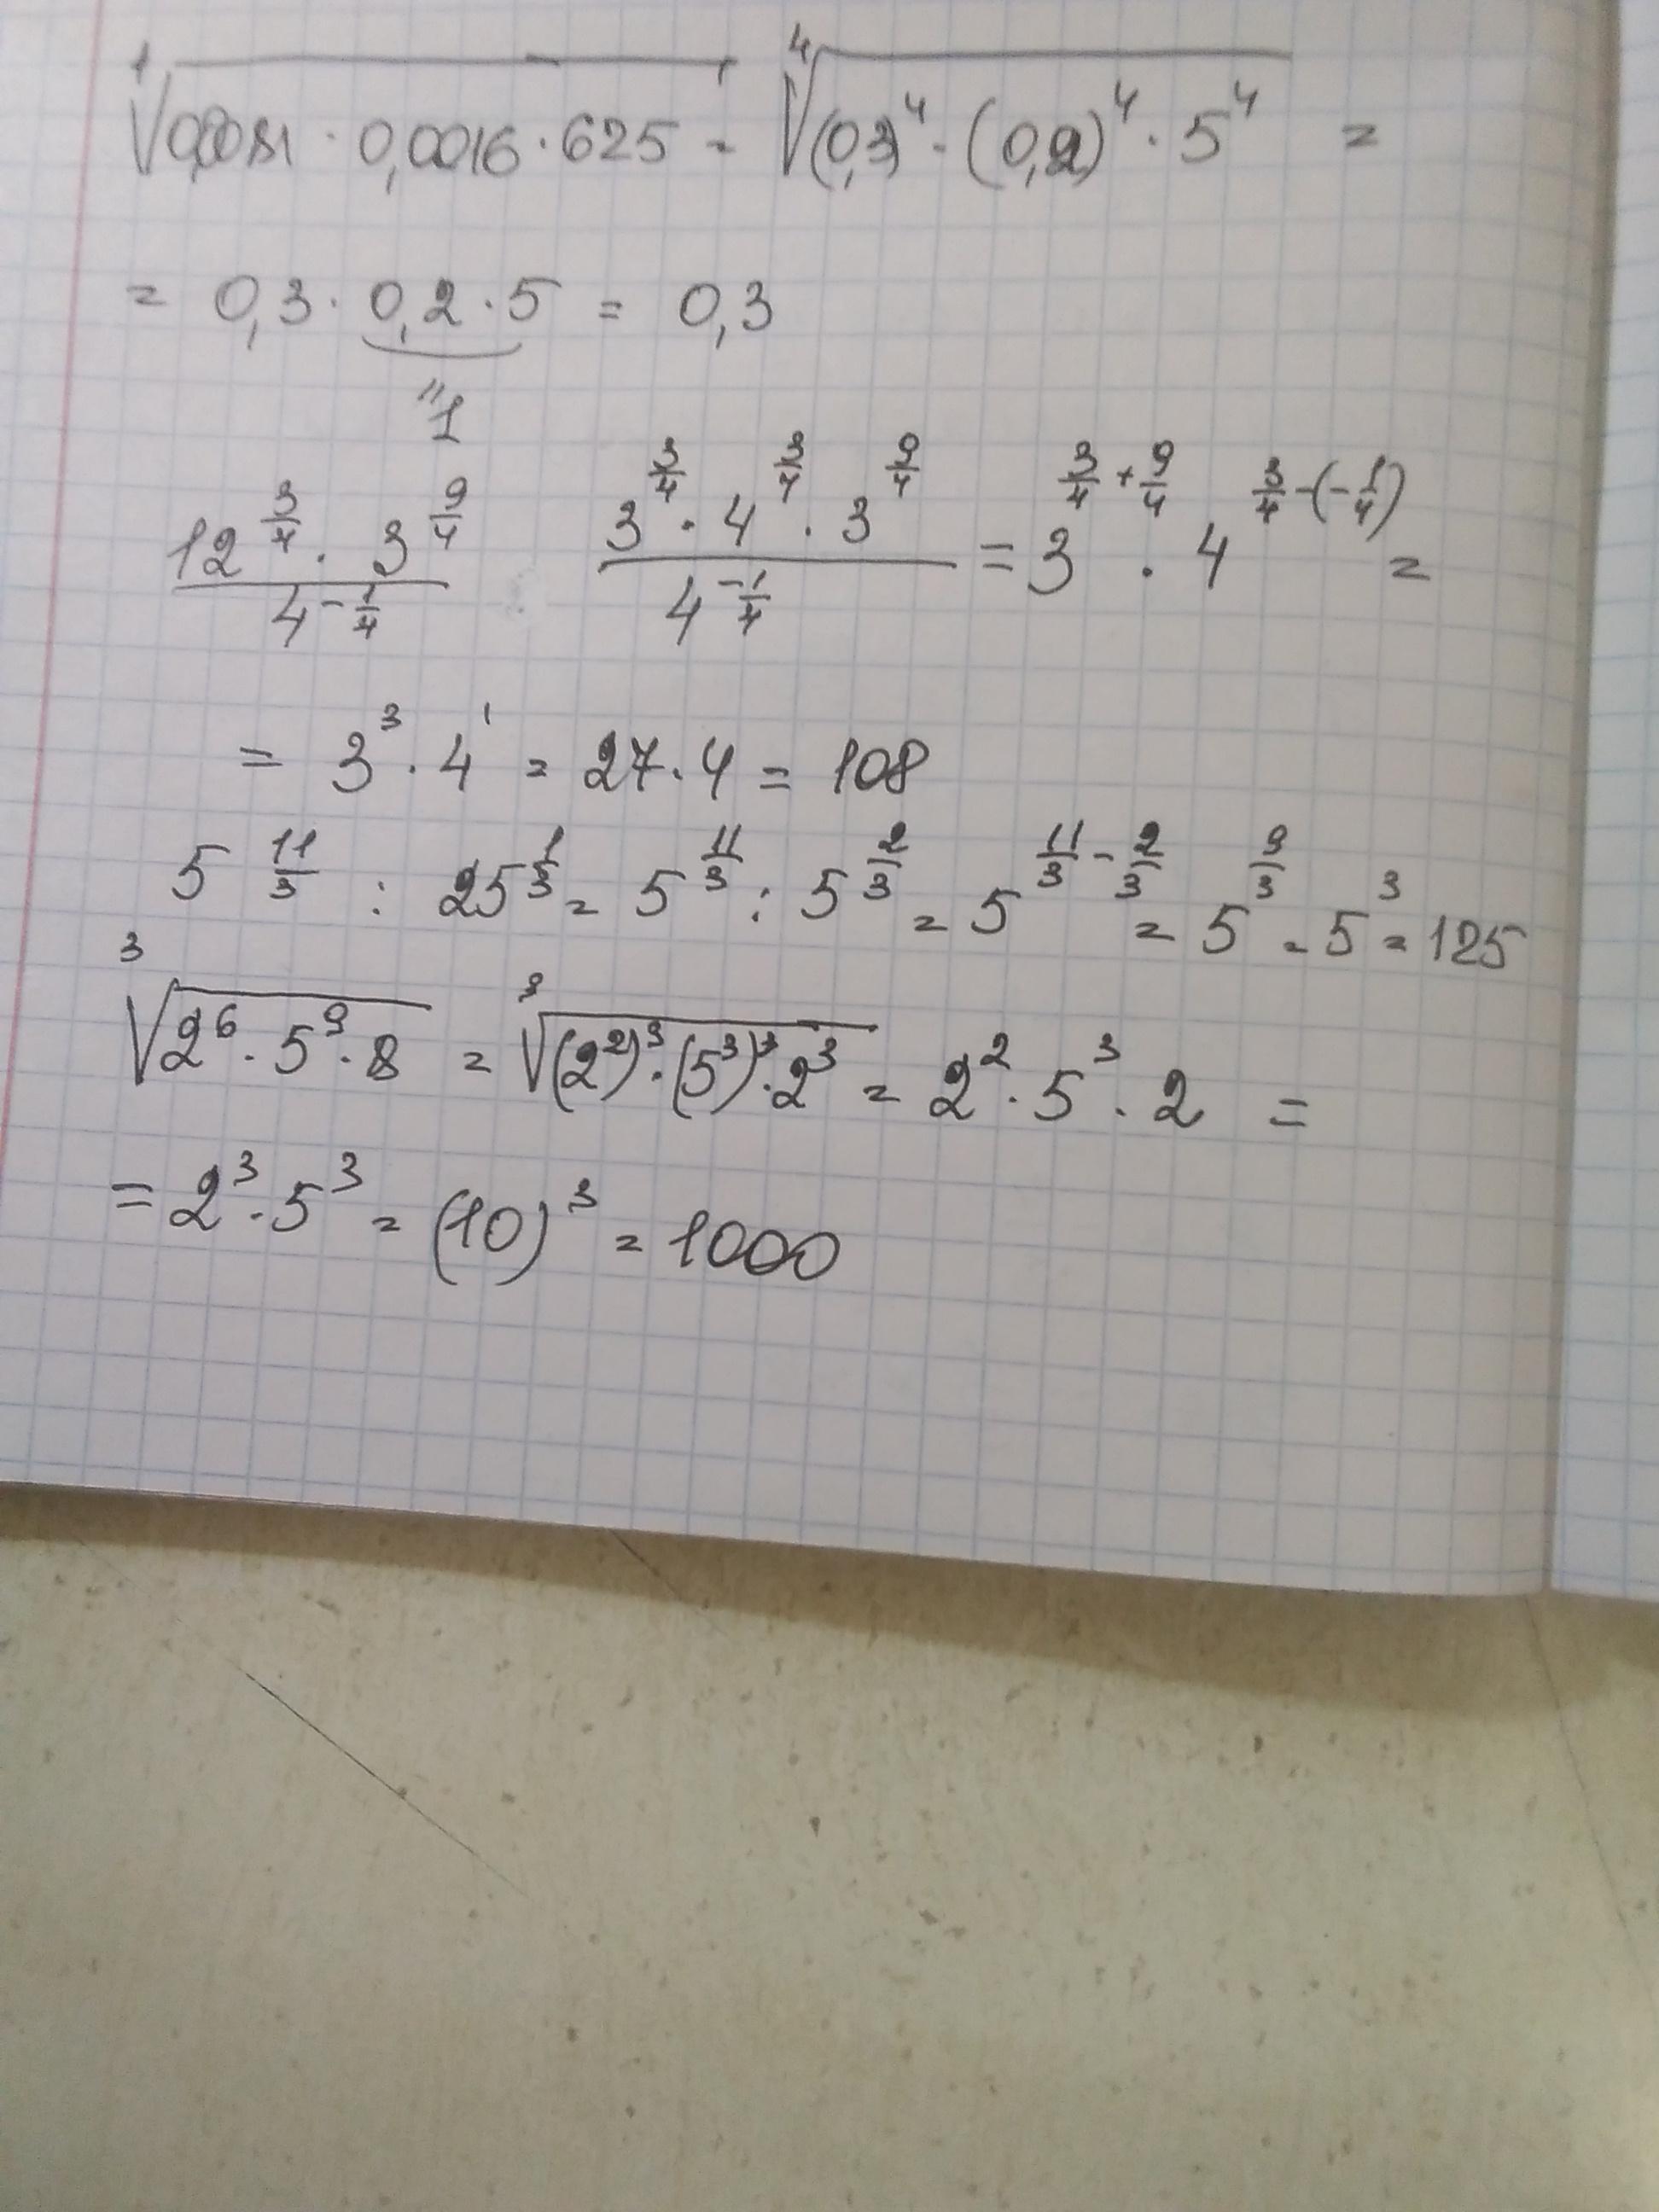 ⁴√0,0081 · 0,0016 · 625 = ⁴√(0,3)⁴ · (0,2)⁴ · 5⁴ =
= 0,3 · 0,2 · 5 = 0,3
"1
12^(3/4) · 3^(9/4) / 4^(-1/4) 3^(3/4) · 4^(3/4) · 3^(9/4) / 4^(-1/4) = 3^(3/4 + 9/4) · 4^(3/4 - (-1/4)) =
= 3³ · 4¹ = 27 · 4 = 108
5^(11/3) : 25^(1/3) = 5^(11/3) : 5^(2/3) = 5^(11/3 - 2/3) = 5^(9/3) = 5³ = 125
³√2⁶ · 5⁹ · 8 = ³√(2²)³ · (5³)³ · 2³ = 2² · 5³ · 2 =
= 2³ · 5³ = (10)³ = 1000